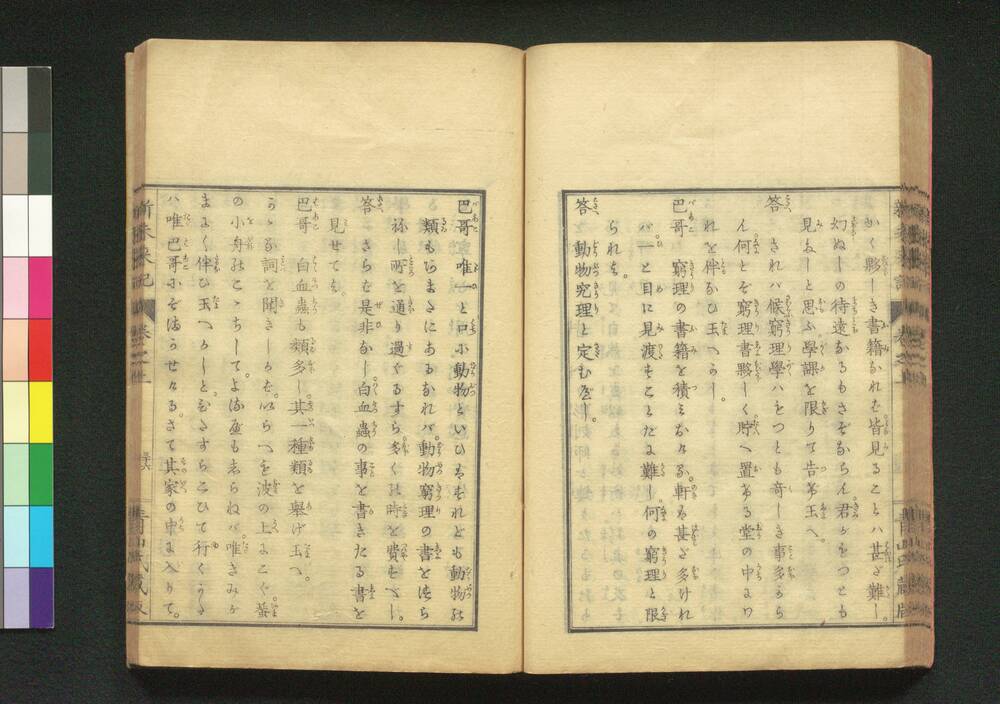 かく夥しき書籍なれど皆見ることハ甚ざ難し。
幻ぬしの待遠なるもさぞならん。君がをつとも
見ねしと思ふ學課を限りて告給玉へ。
答 されバ候窮理學ハをつとも奇しき事多から
ん何とぞ窮理書夥しく貯へ置ける堂の中にわ
れを伴なひ玉へかし。
巴哥 窮理の書籍を積ミおける軒も甚ざ多けれ
バ一と目に見渡すことだに難し何の窮理と限
られよ。
答 動物究理と定むべし。
巴哥 唯一と口に動物といひもすれども動物の
類もちまたにあるなれバ動物窮理の書を陳ら
ねし所を通り過ぐるすら多くの時を費すべし。
答 さらば是非なし白血蟲の事を書きたる書を
見せてよ。
巴哥 白血蟲も類多し其一種類を舉げ玉へ。
かゝる詞を聞きしかど。いらへを波の上にこぐ。蜑
の小舟のこゝちして。よる邊も志らねバ。唯きみが
まにく伴ひ玉へかしと。ひたすらこひて行くうち
ハ唯巴哥にぞまかせける。さて其家の中に入りて。
新未來記 卷之二
青山氏藏版